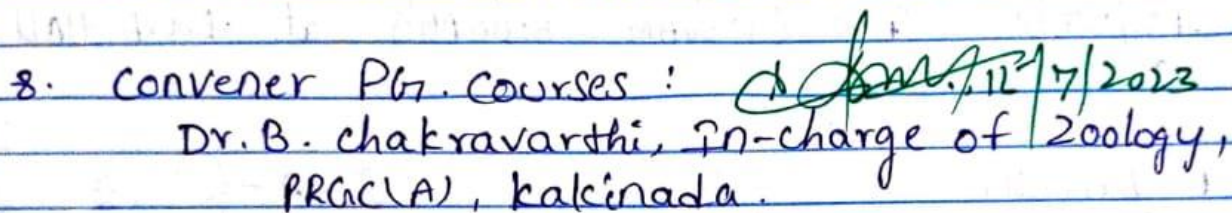 8. Convener PG. Courses : 12/7/2023
Dr. B. chakravarthi, In-charge of Zoology,
PRGC(A), kakinada.